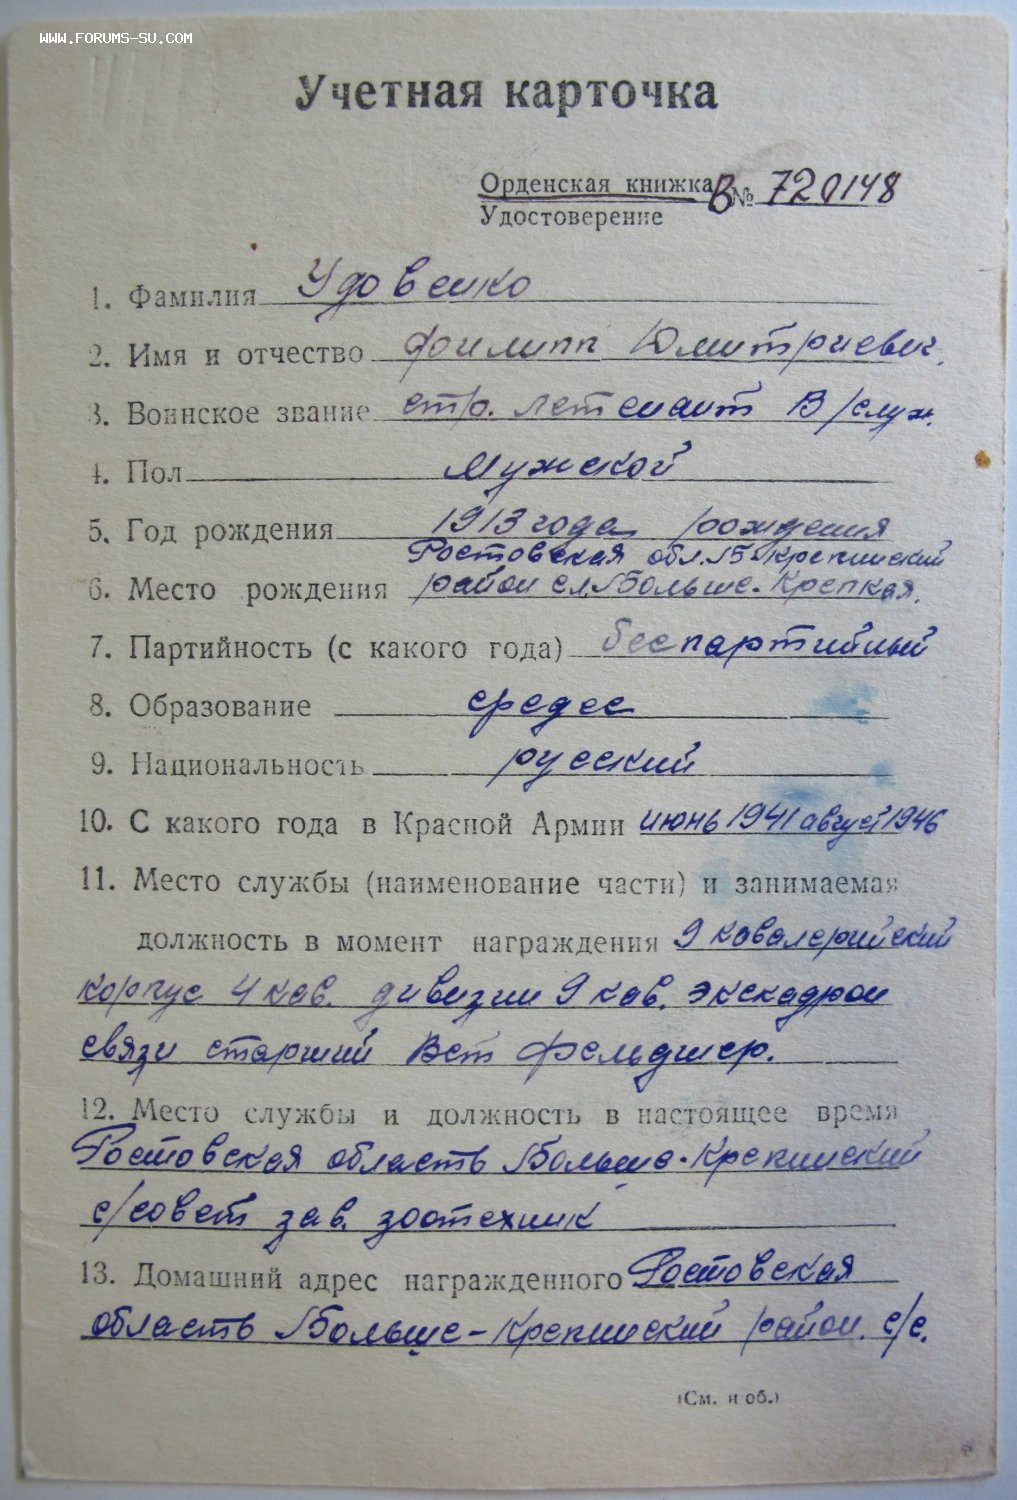 WWW.FORUMS-SU.COM
Учетная карточка
Орденская книжка В № 720148
Удостоверение
1. Фамилия Удовенко
2. Имя и отчество Филипп Дмитриевич
3. Воинское звание ст. лейтенант В/служ.
4. Пол Мужской
5. Год рождения 1913 года рождения
Ростовская обл. Б-Крепинский
6. Место рождения район сл. Больше-Крепкая.
7. Партийность (с какого года) беспартийный
8. Образование средее
9. Национальность русский
10. С какого года в Красной Армии июнь 1941 август 1946
11. Место службы (наименование части) и занимаемая
должность в момент награждения 9 кавалерийский
корпус 4 кав. дивизии 9 кав. эскадрон
связи старший Вет фельдшер.
12. Место службы и должность в настоящее время
Ростовская область Больше-Крепинский
с/совет зав. зоотехник
13. Домашний адрес награжденного Ростовская
область Больше-Крепинский район. с/с.
(См. н об.)